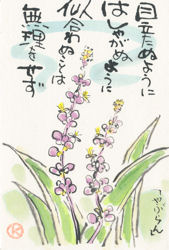 目立たぬように
はしゃがぬように
似合わぬことは
無理をせず
「やぶらん」